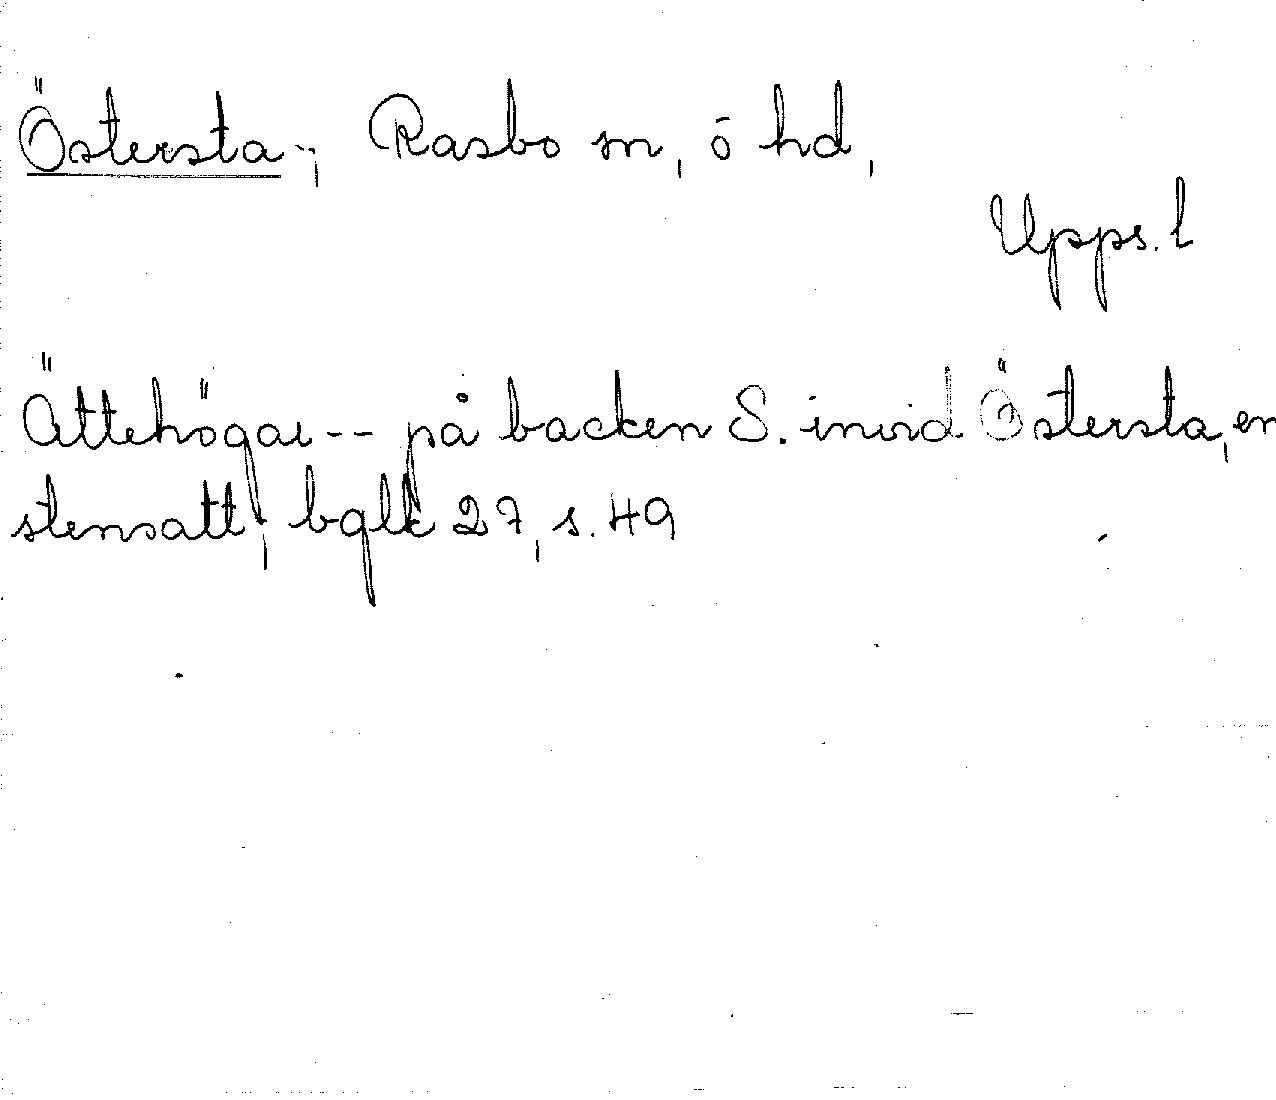 Östersta, Rasbo sn, o hd,
Upps. l
Ättehögar -- på backen S. invid Östersta, en
stensatt, bglk 27, s. 49